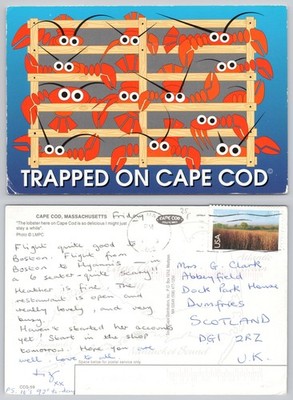 TRAPPED ON CAPE COD ©
CAPE COD, MASSACHUSETTS
"The lobster here on Cape Cod is so delicious I might just
stay a while".
Photo © LMPC
Friday
Flight quite good to
Boston. Flight from
Boston to Hyannis — in
a 6 seater — quite 'scary'!
Weather is fine. The
restaurant is open and
really lovely, and very
busy.
Haven't started her accounts
yet! Start in the shop
tomorrow. Hope you are
well, love to all
xx
CAPE COD
USA
Mrs G. Clark
Abbeyfield
Dock Park House
Dumfries
SCOTLAND
DG1 2RZ
U.K.
CCG-59